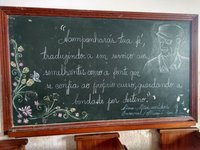 "Acompanharás tua fé,
traduzindo-a em serviço aos
semelhantes como a fonte que
se confia ao próprio curso, guardando a
bondade por destino.